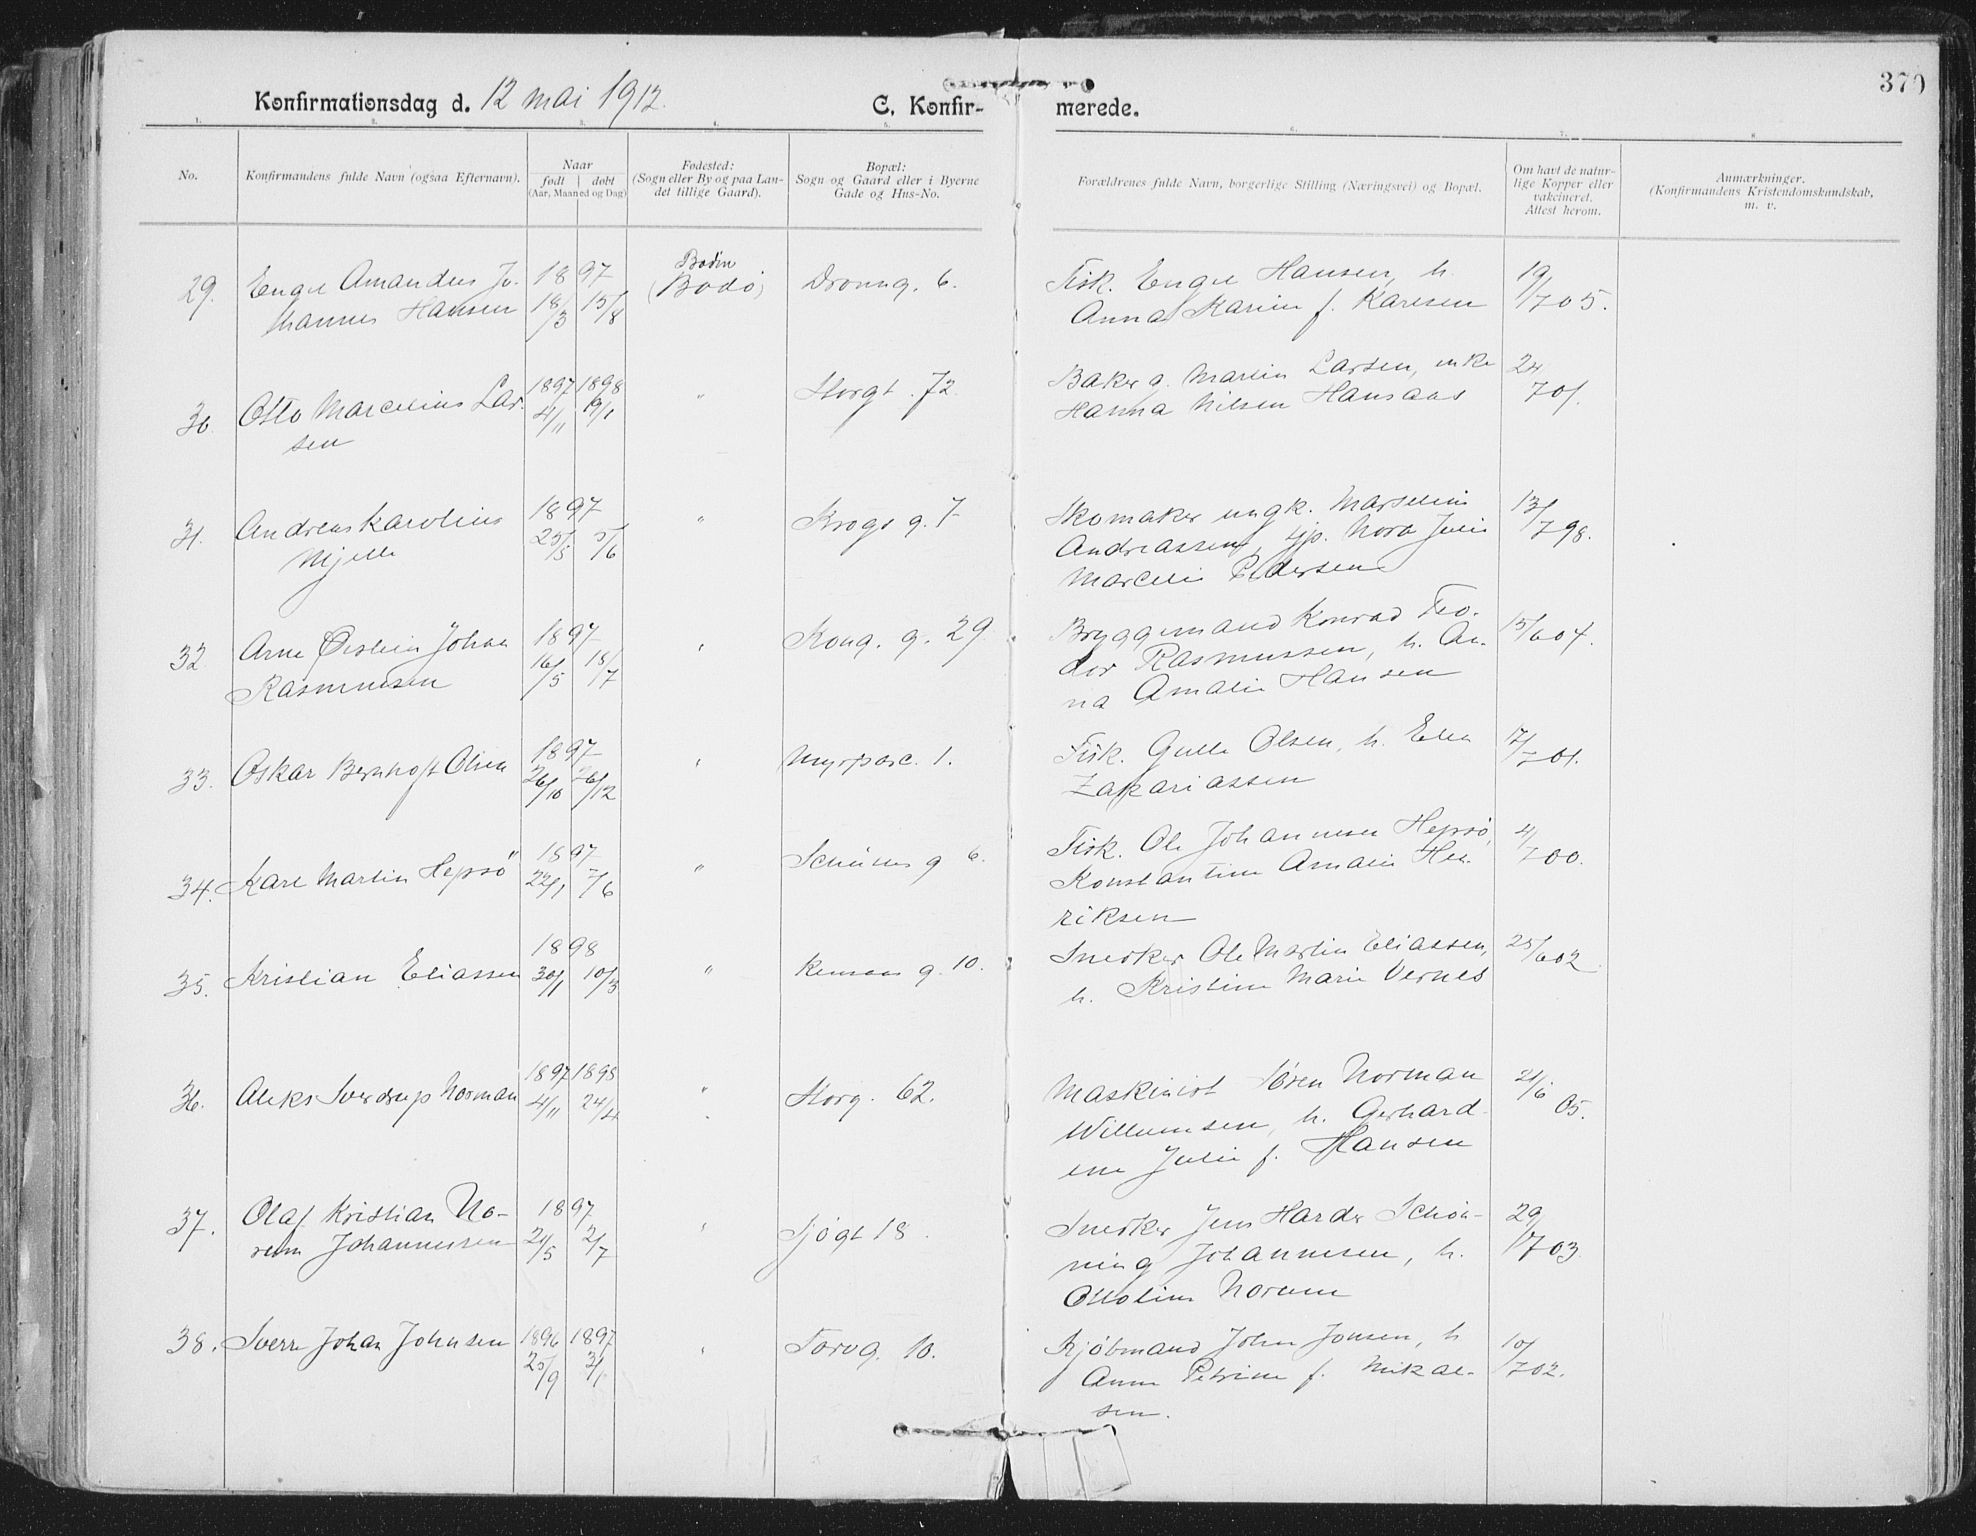 370
Konfirmationsdag d. 12 mai 1912.
C. Konfir- merede.
1. 2. 3. 4. 5. 6. 7. 8.
No.
Konfirmandens fulde Navn (ogsaa Efternavn).
Naar
født døbt
(Aar, Maaned og Dag)
Fødested:
(Sogn eller By og paa Landet tillige Gaard).
Bopæl:
Sogn og Gaard eller i Byerne
Gade og Hus-No.
Forældrenes fulde Navn, borgerlige Stilling (Næringsvei) og Bopæl.
Om havt de natur-
lige Kopper eller
vakcineret.
Attest herom.
Anmærkninger.
(Konfirmandens Kristendomskundskab,
m. v.
29. Engel Amandus Jo-
hannes Hansen
1897
18/3 15/8
Bodin
(Bodø)
Dronng. 6.
Fisk. Engel Hansen, h.
Anna Karine f. Karlsen
19/7 05.
30. Otto Marcelius Lar-
sen
1897 1898
4/11 19/1
"
Storgt. 72.
Baker g. Martin Larsen, enke
Hanna Nilsen Hansaas
24
701.
31. Andreas Karolius
Mjelle
1897
25/5 5/6
"
Krogs g. 7
Skomaker ungk. Marselius
Andreassen, pp. Nora Julie
Marcelie Pedersen
13/7 98.
32. Arne Øistein Johan
Rasmussen
1897
16/5 18/7
"
Kong. g. 29
Bryggemand Konrad Teo-
dor Rasmussen, h. An-
na Amalie Hansen
15/6 04.
33. Oskar Bernhoft Olsen
1897
26/10 26/12
"
Myrpasc. 1.
Fisk. Gulle Olsen, h. Elen
Zakariassen
17/7 01.
34. Karl Martin Hepsö
1897
22/1 7/6
"
g 6.
Fisk. Ole Johannesen Hepsö,
Konstantine Amalie Hen-
riksen
4/7 00.
35. Kristian Eliassen
1898
30/1 10/3
"
g. 10.
Snedker Ole Martin Eliassen,
h. Kristine Marie Vernes
25/6 02.
36. Aleks Sverdrup Norman
1897 1898
4/11 24/4
"
Storg. 62.
Maskinist Søren Norman
Willumsen, h. Gerhard-
ine Julie f. Hansen
21/6 05.
37. Olaf Kristian No-
rum Johannessen
1897
21/5 2/7
"
Sjøgt 18.
Snedker Jens Harder Schön-
ning Johannesen, h.
Ottoline Norum
29/7 03.
38. Sverre Johan Johnsen
1896 1897
25/9 3/1
"
Torvg. 10.
Kjøbmand John Jonsen, h
Anna Petrine f. Mikal-
sen.
10/7 02.